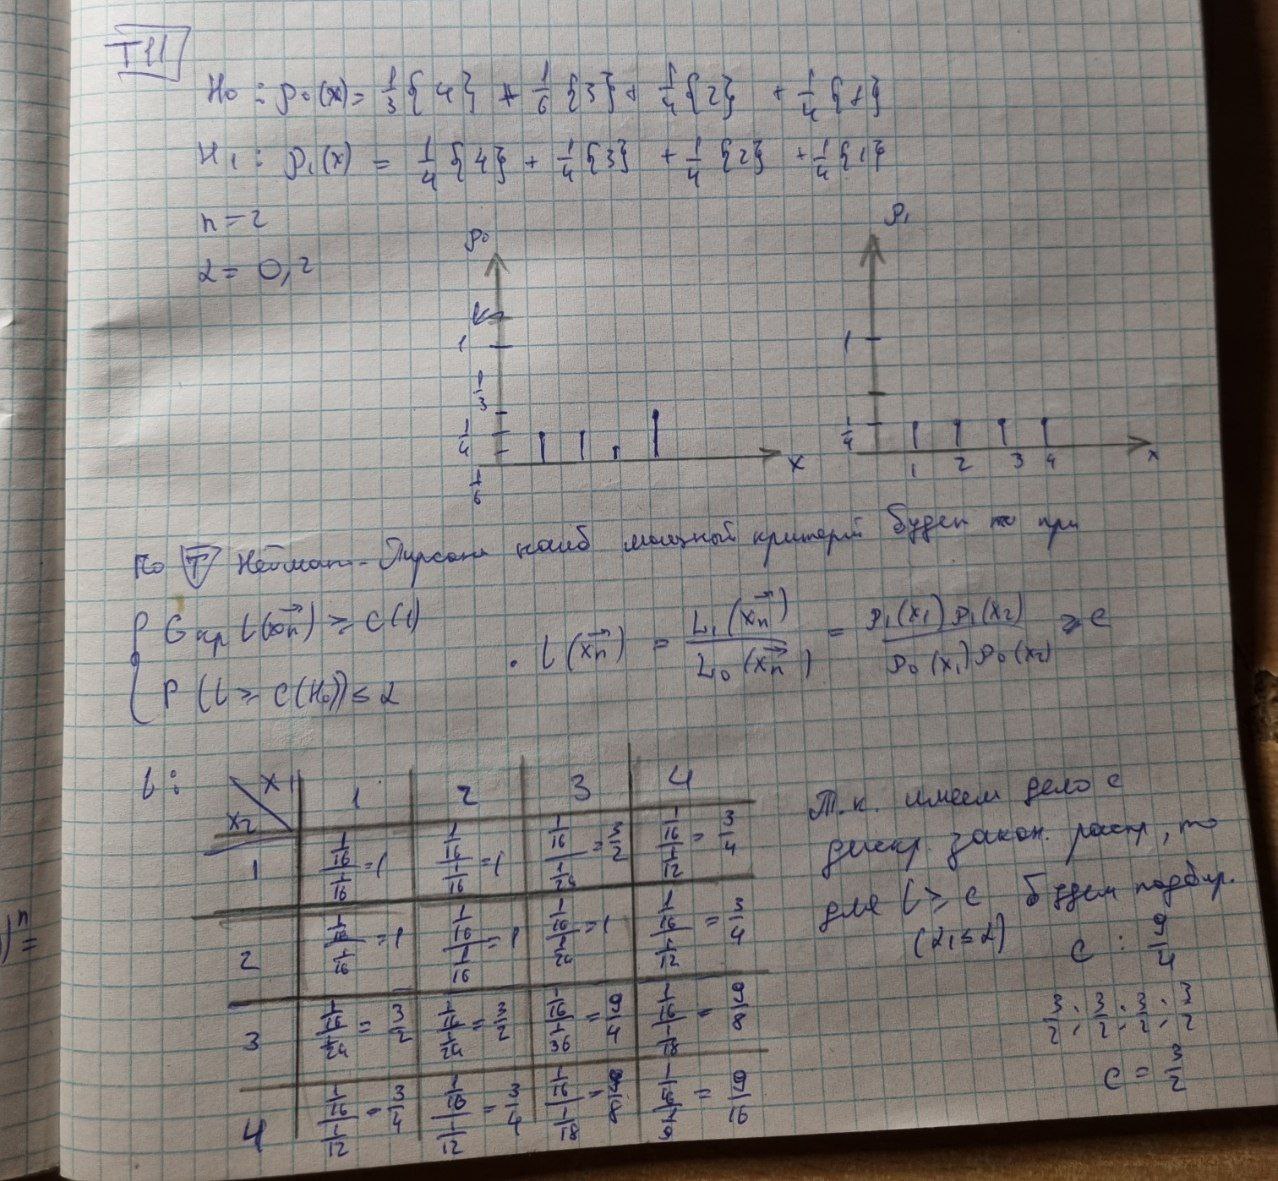 T11
H₀ : p₀(x) = 1/3 {4} + 1/6 {3} + 1/4 {2} + 1/4 {1}
H₁ : p₁(x) = 1/4 {4} + 1/4 {3} + 1/4 {2} + 1/4 {1}
n = 2
α = 0,2
p₀
1
1/3
1/4
1/6
x
p₁
1
1/4
1 2 3 4
x
По T Нейман-Пирсона наиб мощный критерий будет при
{ Gкр l(x⃗n) ≥ C (1)
P (l ≥ C(H₀)) ≤ α
l(x⃗n) = L₁(x⃗n) / L₀(x⃗n) = p₁(x₁) p₁(x₂) / p₀(x₁) p₀(x₂) ≥ C
l:
x₂ \ x₁ 1 2 3 4
1 (1/16)/(1/16) = 1 (1/16)/(1/16) = 1 (1/16)/(1/24) = 3/2 (1/16)/(1/12) = 3/4
2 (1/16)/(1/16) = 1 (1/16)/(1/16) = 1 (1/16)/(1/24) = 1 (1/16)/(1/12) = 3/4
3 (1/16)/(1/24) = 3/2 (1/16)/(1/24) = 3/2 (1/16)/(1/36) = 9/4 (1/16)/(1/18) = 9/8
4 (1/16)/(1/12) = 3/4 (1/16)/(1/12) = 3/4 (1/16)/(1/18) = 9/8 (1/16)/(1/9) = 9/16
Т.к. имеем дело с
дискр. закон. распр, то
для l ≥ c будем подбир.
(α₁ ≤ α) c : 9/4
3/2 ; 3/2 ; 3/2 ; 3/2
c = 3/2
)ⁿ =